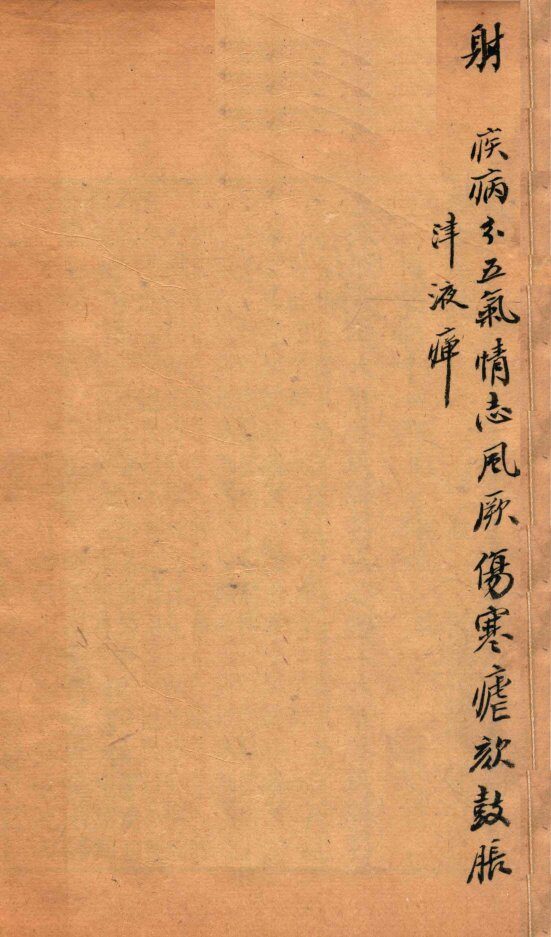 射
疾病分五氣情志風厥傷寒瘧欬鼓脹
津液痺